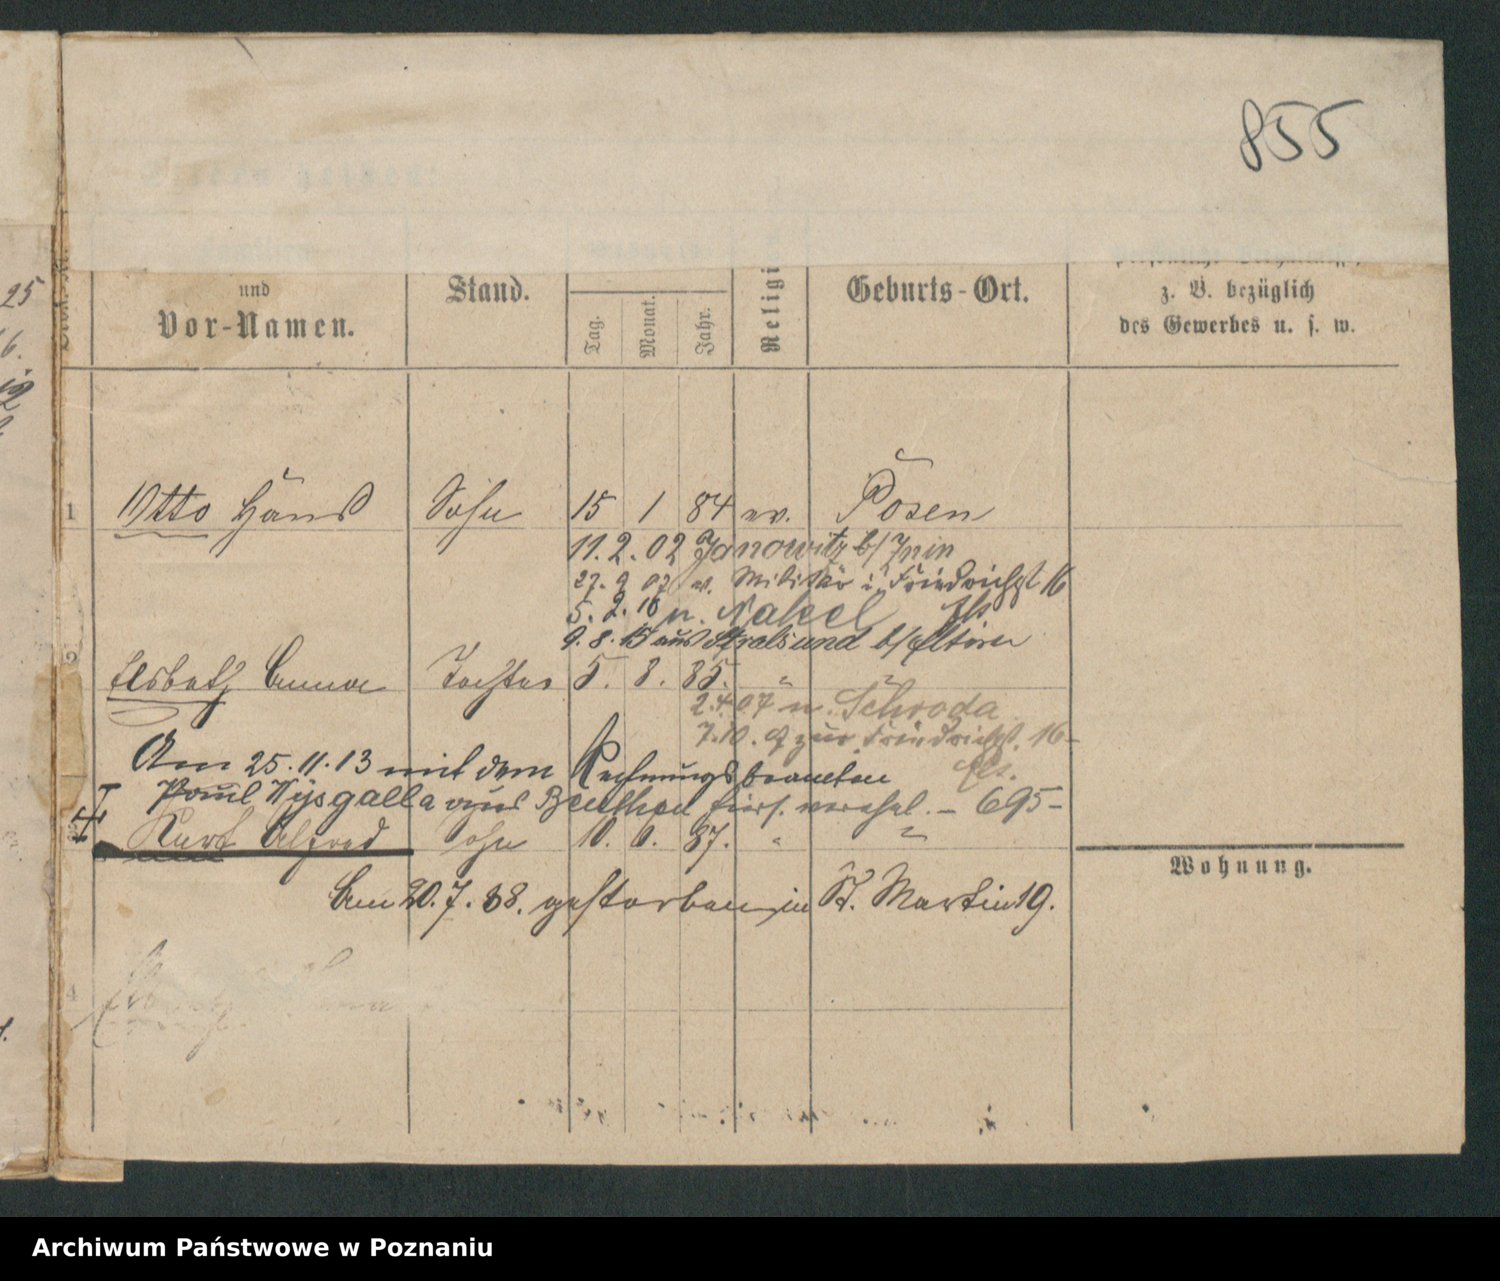 855
und
Vor-Namen.
Stand.
Tag.
Monat.
Jahr.
Geburts-Ort.
z. B. bezüglich
des Gewerbes u. s. w.
1 Otto Hans Sohn 15 1 84 ev. Posen
11.2.02 Janowitz b/Znin
27. 9 07 v. Militär i. Friedrichst 16
5. 2. 10 n. Nakel
9. 8. 15 aus Stralsund b/Eltern
2
Elsbeth Anna Tochter 5. 8. 85. " "
2.4.07 n. Schroda
7.10. 9 zur Friedrichst. 16-
Am 25.11.13 mit dem Rechnungsbeamten
Paul Nysgalla aus Beuthen hiers. verehel. - 695-
Kurt Alfred Sohn 10. 6. 87. " "
Wohnung.
Am 20.7.88. gestorben in St. Martin 19.
4
25
Archiwum Państwowe w Poznaniu